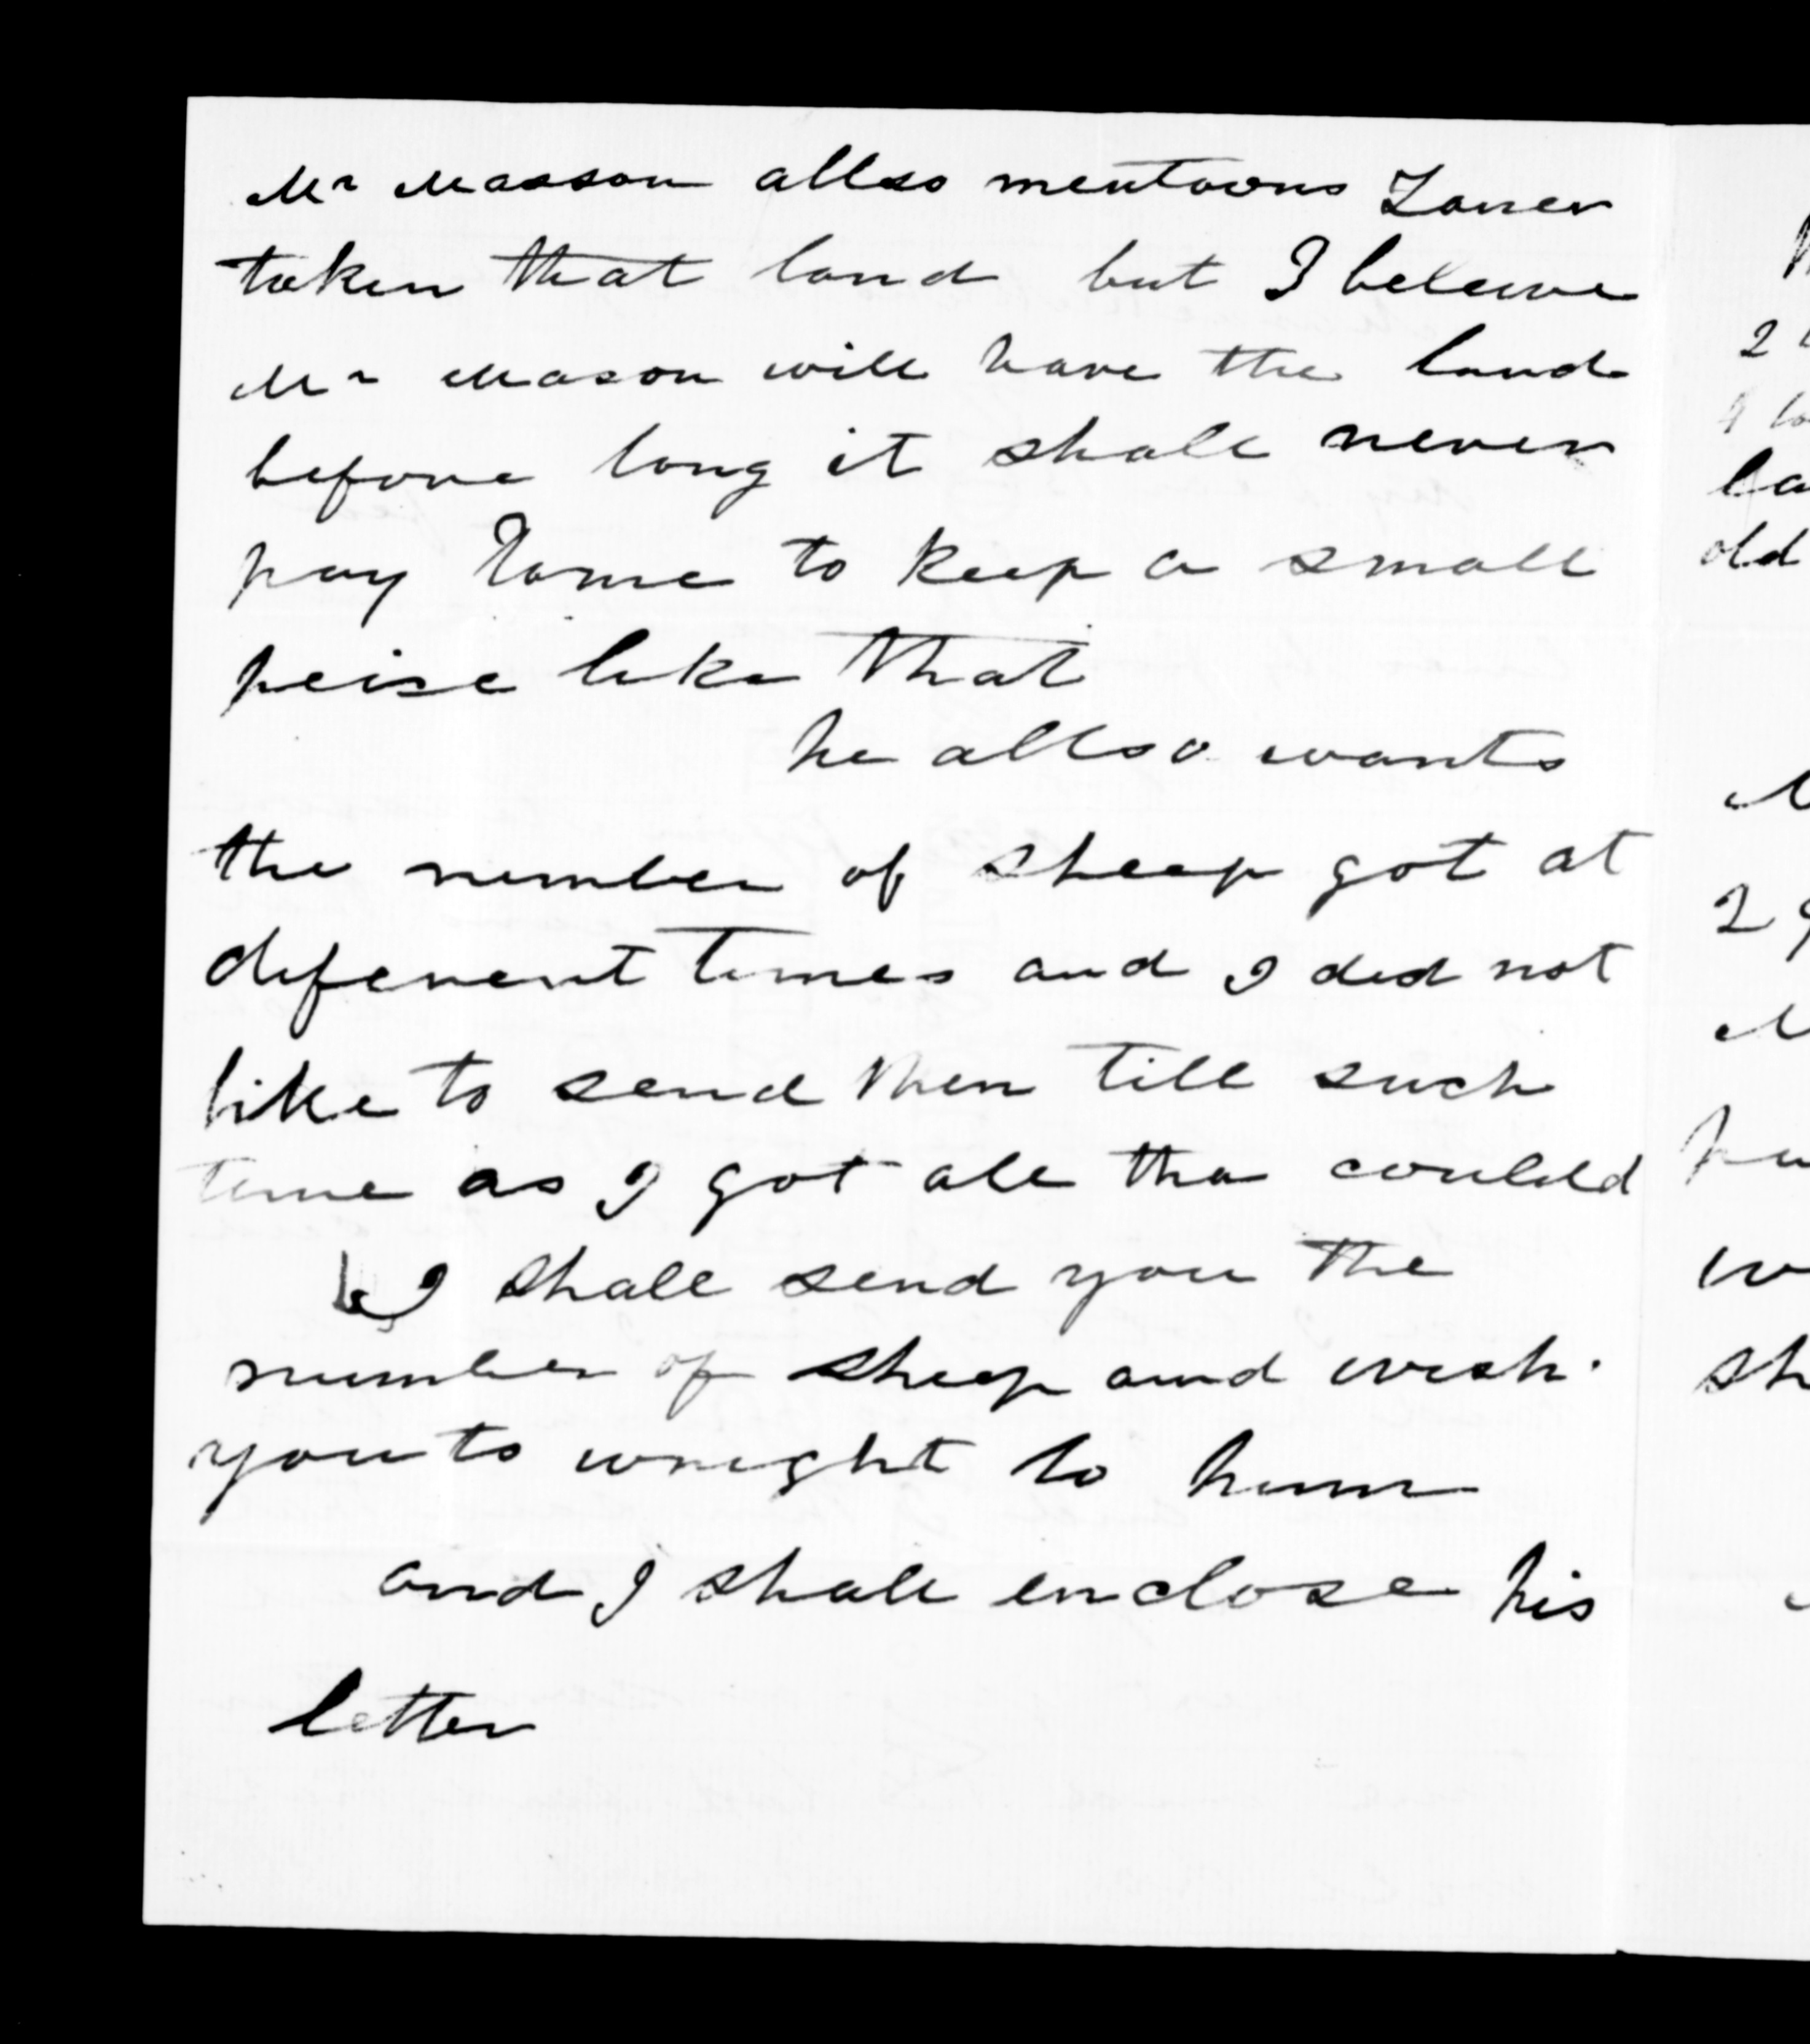 Mr Masson allso mentoons
taken that land but I beleive
Mr Mason will have the land
before long it shall never
pay to keep a small
peise like that
he allso wants
the number of sheep got at
diferent times and I did not
like to send then till such
time as I got all tha coulld
I shall send you the
number of sheep and wish
you to wright to him
and I shall enclose his
letter
old